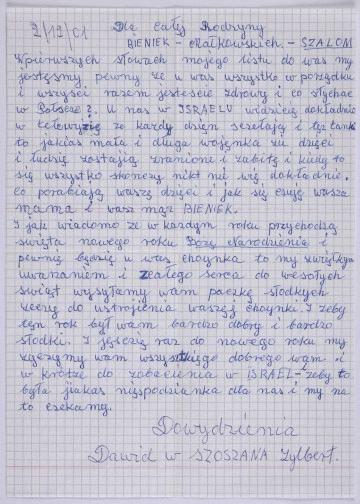 2/12/01 Dla całej Rodzyny
BIENIEK - Białkowskich. - SZALOM
Wpierwszych słowach mojego listu do was my
jesteśmy pewny że u was wszystko w porządku
i wszyscy razem jesteście zdrowy i co słychać
w Polsce?. U nas w ISRAELU widzicie dokładnie
w telewyzię że każdy dzień szczelają i
to jakiaś mała i długa wojenka że dzieci
i ludzię zostają zranione i zabite i kiedy to
się wszystko skonczy nikt nie wię dokladnię.
Co porabiają waszę dzięci i jak się czuję wasza
mama i wasz mąż BIENIEK.
I jak wiadomo że w każdym roku przychodzą
święta nowego roku Bożę Narodzenia i
pewnię będzię u was choynka to my zwięlkym
uwazaniem i zcałego serca do wesołych
świąt wysyłamy wam paczkę słodkych
żeczy do ustrojenia waszej choynki. I żeby
ten rok był wam bardzo dobry i bardzo
słodki. I jeszczę raz do nowego roku my
życzymy wam wszystkiego dobrego wam i
w krótce do zobaczenia w iSRAEL - żeby to
była jiakaś niespodzianka dla nas i my na
to czekamy.
Dowydzienia
Dawid w SZOSZANA Zylbert.